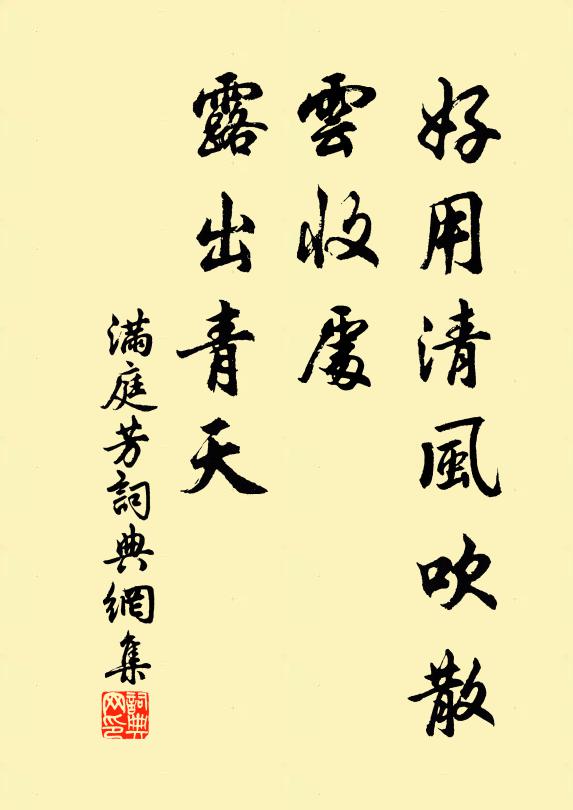 好用清風吹散
雲收處
露出青天
滿庭芳詞典網集
詞典网印